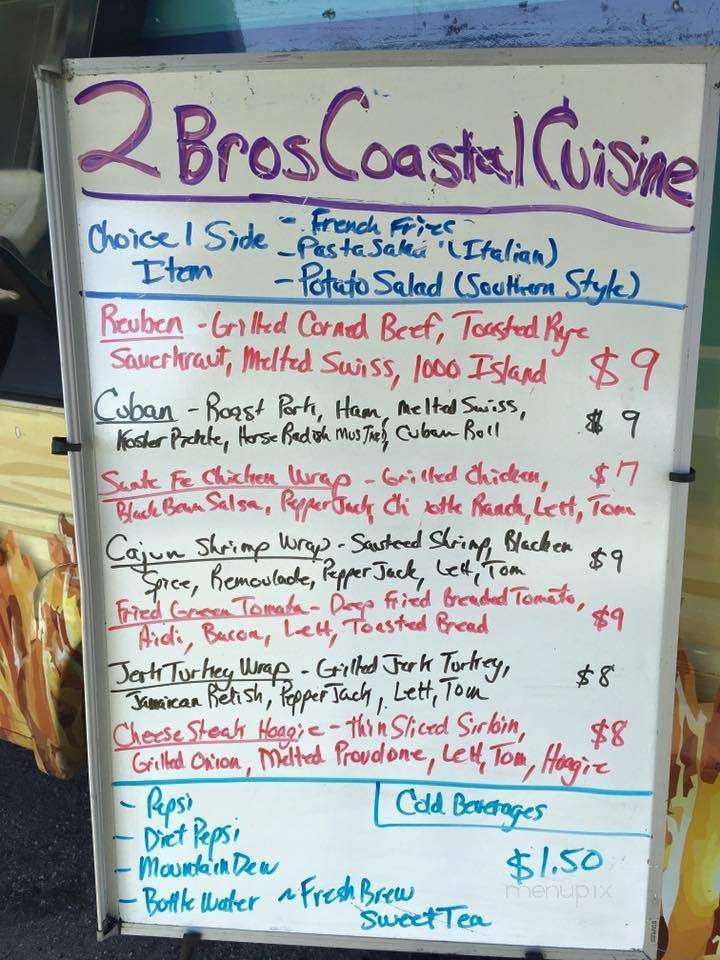 2 Bros Coastal Cuisine
Choice 1 Side - French Fries
Item - Pasta Salad (Italian)
- Potato Salad (Southern Style)
Reuben - Grilled Corned Beef, Toasted Rye
Sauerkraut, Melted Swiss, 1000 Island $9
Cuban - Roast Pork, Ham, Melted Swiss, $9
Kosher Pickle, Horse Radish Mustard, Cuban Roll
Sante Fe Chicken Wrap - Grilled Chicken, $7
Black Bean Salsa, Pepper Jack, Ch otle Ranch, Lett, Tom
Cajun Shrimp Wrap - Sauteed Shrimp, Blacken $9
Spice, Remoulade, Pepper Jack, Lett, Tom
Fried Green Tomato - Deep Fried Breaded Tomato, $9
Aioli, Bacon, Lett, Toasted Bread
Jerk Turkey Wrap - Grilled Jerk Turkey, $8
Jamaican Relish, Pepper Jack, Lett, Tom
Cheese Steak Hoagie - Thin Sliced Sirloin, $8
Grilled Onion, Melted Provolone, Lett, Tom, Hoagie
Cold Beverages
- Pepsi
- Diet Pepsi
- Mountain Dew $1.50
- Bottle Water ~ Fresh Brew
Sweet Tea
menupix